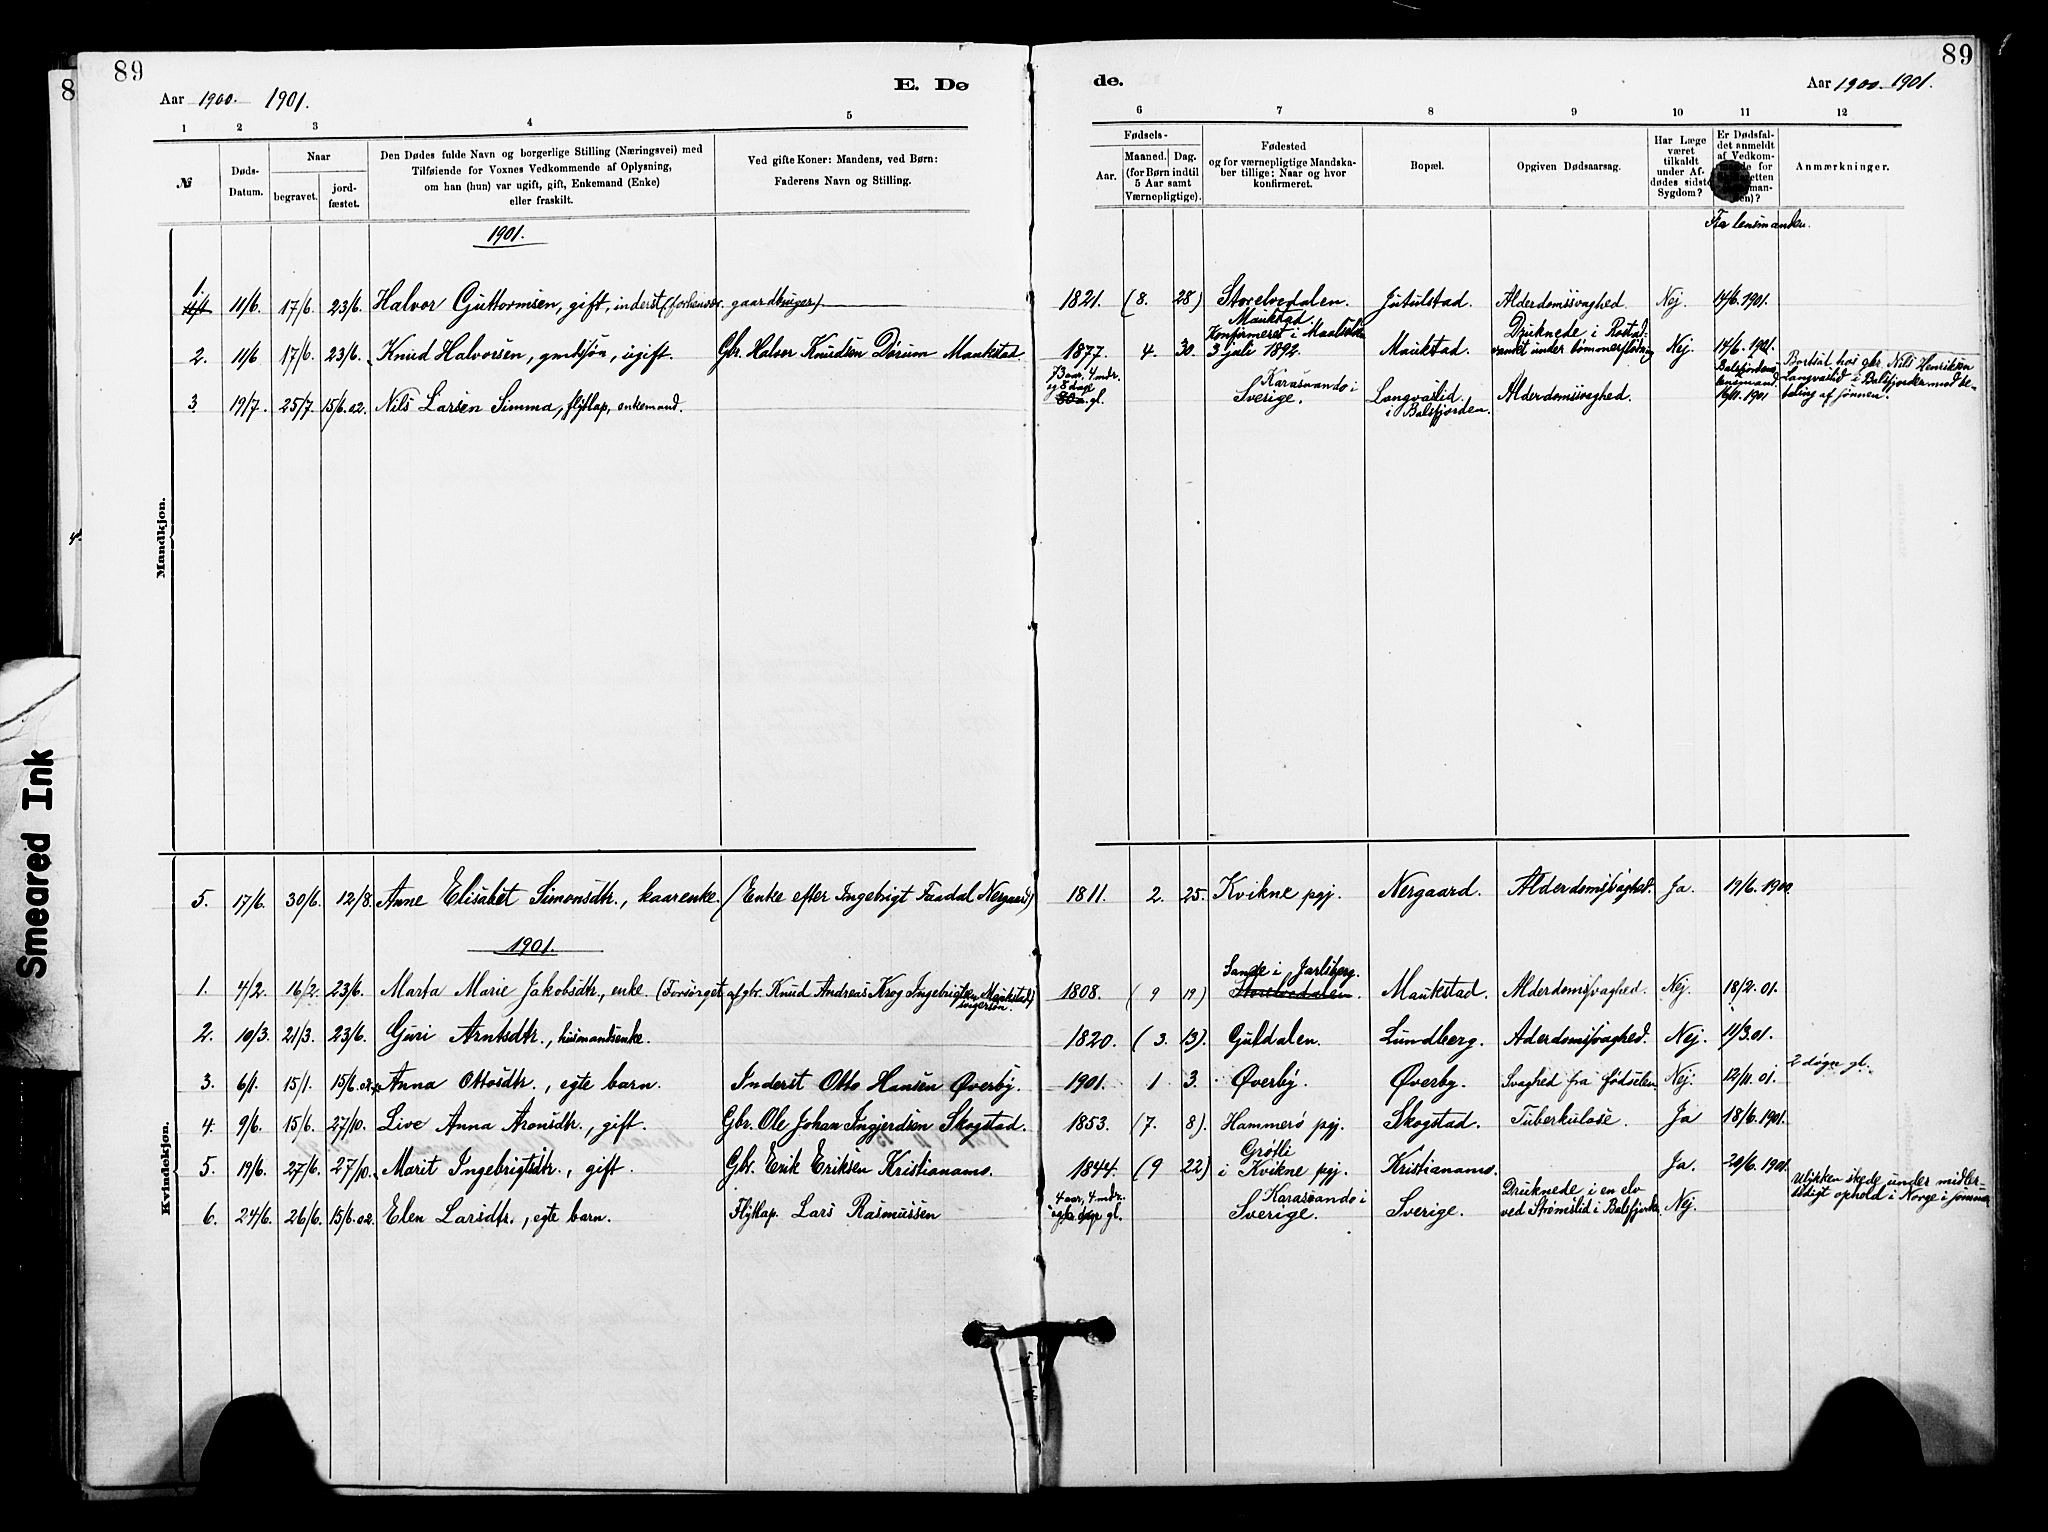 89
89
Aar 1900. 1901.
E. Dø
de.
Aar 1900. 1901.
1 2 3 4 5
6 7 8 9 10 11 12
№
Døds-
Datum.
Naar
begravet.
jord-
fæstet.
Den Dødes fulde Navn og borgerlige Stilling (Næringsvei) med
Tilføiende for Voxnes Vedkommende af Oplysning,
om han (hun) var ugift, gift, Enkemand (Enke)
eller fraskilt.
Ved gifte Koner: Mandens, ved Børn:
Faderens Navn og Stilling.
Fødsels-
Aar.
Maaned. Dag.
(for Børn indtil
5 Aar samt
Værnepligtige).
Fødested
og for værnepligtige Mandska-
ber tillige: Naar og hvor
konfirmeret.
Bopæl.
Opgiven Dødsaarsag.
Har Læge
været
tilkaldt
under Af-
dødes sidste
Sygdom?
Er Dødsfal-
det anmeldt
af Vedkom-
Anmærkninger.
Fra lensmanden.
Mandkjøn.
1901.
1. 11/6. 17/6. 23/6. Halvor Guttormsen, gift, inderst (forhenvær. gaardbruger) 1821. (8. 28) Storelvedalen. Jutulstad. Alderdomssvaghed. Nej. 14/6. 1901.
2. 11/6 17/6. 23/6. Knud Halvorsen, gmbrsøn, ugift. Gbr. Halvor Knudsen Dørum Maukstad. 1877. 4. 30. Maukstad. Konfirmeret i Maalselv 3 juli 1892. Maukstad. Druknede i Rostad-vandt under tømmerflødning Nej. 14/6. 1901.
3. 19/7. 25/7. 15/6.02. Nils Larsen Simma, flytlap, enkemand. 73 aar, 4 mdr. og 8 dage gl. Karasuando i Sverige. Langvaslid i Balsfjorden. Alderdomssvaghed. Balsfjordens lensmand. 16/11. 1901 Bortsat hos gbr. Nils Henriksen Langvaslid i Balsfjorden mod be-taling af sønnen.
Kvindekjøn.
5. 17/6. 30/6. 12/8. Anne Elisabet Simonsdtr., kaarenke. (Enke efter Ingebrigt Faadal Nergaard) 1811. 2. 25. Kvikne pgj. Nergaard. Alderdomssvaghed. Ja. 19/6. 1900.
1901.
1. 4/2. 16/2. 23/6. Marta Marie Jakobsdtr., enke. (Forsørget af gbr. Knud Andreas Krog Ingebrigtsen Maukstad) 1808. (9 19) Sande i Jarlsberg. Storelvedalen. Maukstad. Alderdomssvaghed. Nej. 18/2. 01.
2. 10/3. 21/3. 23/6. Guri Arntsdtr., husmandsenke. 1820. (3. 13). Guldalen. Lundberg. Aderdomssvaghed. Nej. 11/3.01.
3. 6/1. 15/1. 15/6.02. Anna Ottosdtr., egte barn. Inderst Otto Hansen Øverby. 1901. 1 3. Øverby. Øverby. Svaghed fra fødselen. Nej. 12/11. 01. 2 døgn gl.
4. 9/6. 15/6. 27/10. Live Anna Aronsdtr., gift. Gbr. Ole Johan Ingjerdsen Skogstad. 1853. (7. 8). Hammerø pgj. Skogstad. Tuberkulose. Ja 18/6. 1901.
5. 19/6. 27/6. 27/10. Marit Ingebrigtsdtr., gift. Gbr. Erik Eriksen Kristianamo. 1844. (9 22) Grøtli i Kvikne pgj. Kristianamo. Ja. 20/6. 1901.
6. 24/6. 26/6. 15/6.02. Elen Larsdtr., egte barn. Flytlap. Lars Rasmussen 4 aar, 4 mdr. gl. Karasuando i Sverige. Sverige. Druknede i en elv ved Strømslid i Balsfjorden. Nej. Ulykken skede under midler-tidigt ophold i Norge i sommer
Smeared Ink